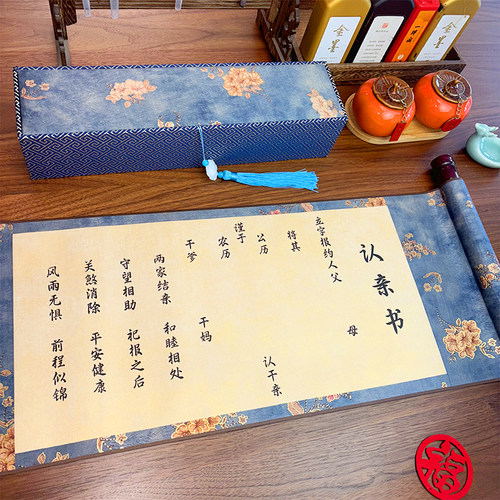 认亲书
立字报约人父 母
将其 认干亲
公历
谨于
农历
干爹 干妈
两家结亲 和睦相处
守望相助 祀报之后
关煞消除 平安健康
风雨无惧 前程似锦
金墨
一得阁
金墨
福